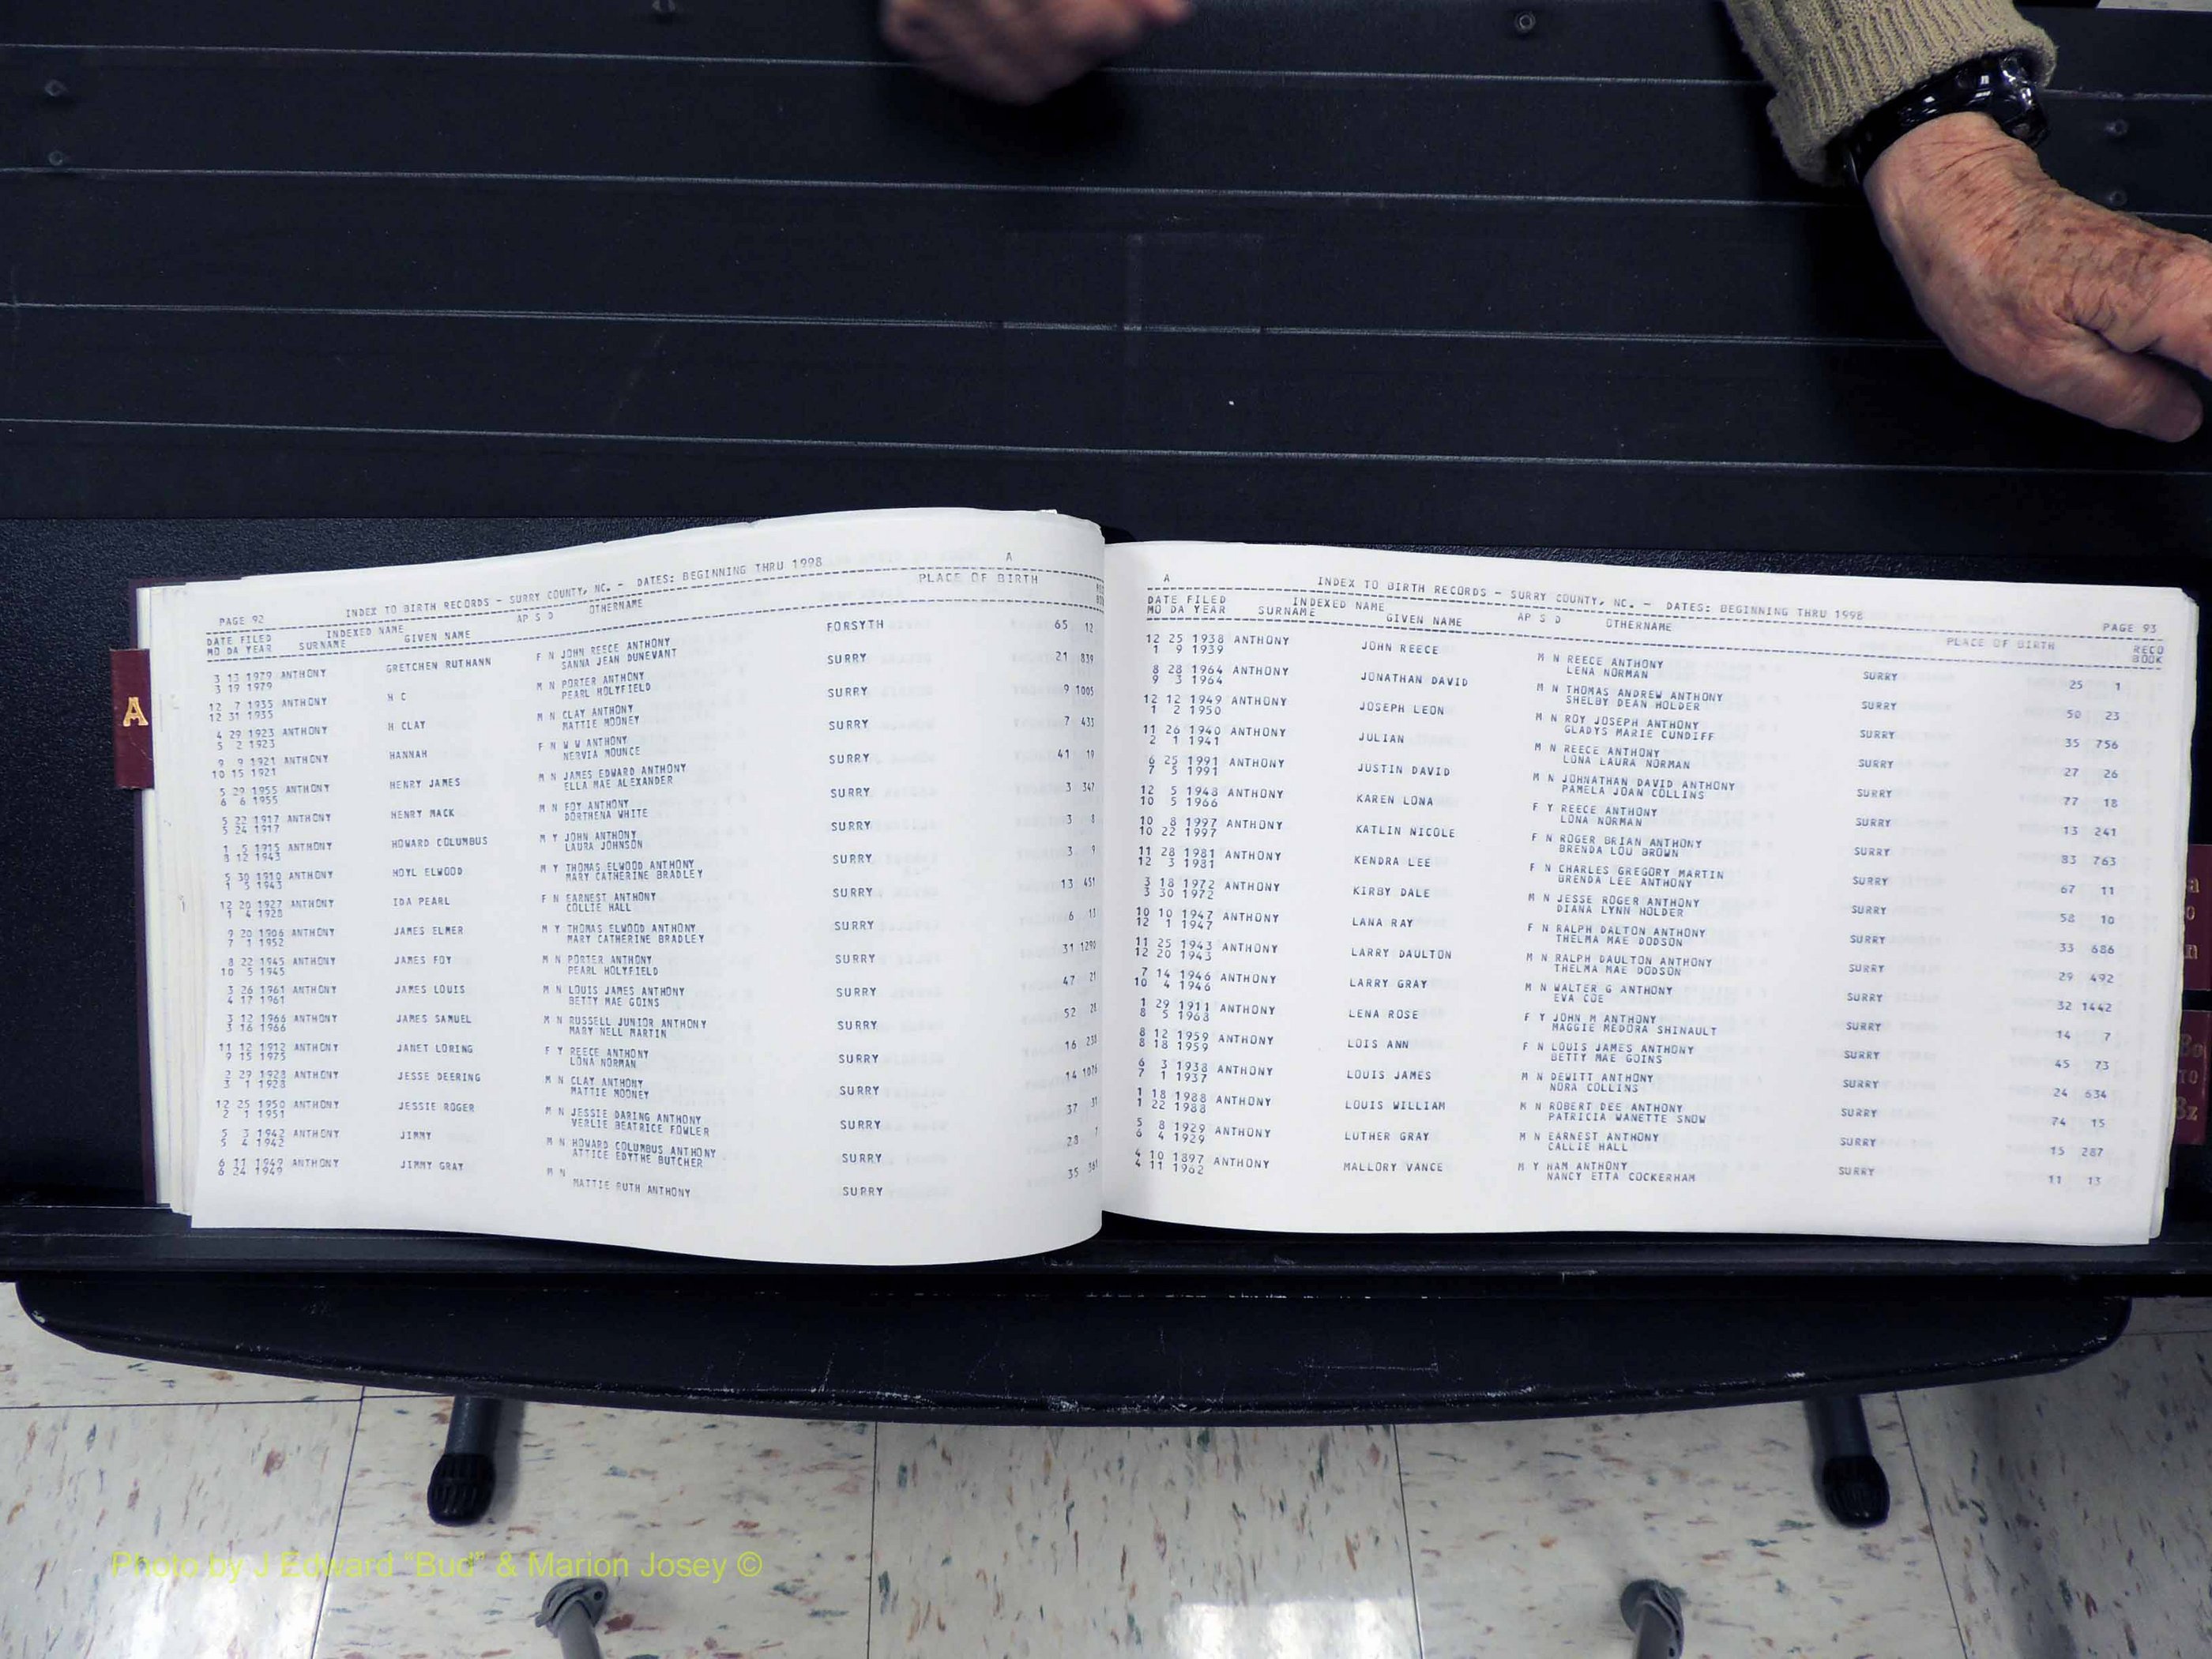 PAGE 92 INDEX TO BIRTH RECORDS - SURRY COUNTY, NC. - DATES: BEGINNING THRU 1998 A
DATE FILED INDEXED NAME AP S D OTHERNAME PLACE OF BIRTH
MO DA YEAR SURNAME GIVEN NAME
3 13 1979 ANTHONY GRETCHEN RUTHANN F N JOHN REECE ANTHONY FORSYTH 65 12
3 19 1979 SANNA JEAN DUNEVANT
12 7 1935 ANTHONY H C M N PORTER ANTHONY SURRY 21 839
12 31 1935 PEARL HOLYFIELD
4 29 1923 ANTHONY H CLAY M N CLAY ANTHONY SURRY 9 1005
5 2 1923 MATTIE MOONEY
9 9 1921 ANTHONY HANNAH F N W W ANTHONY SURRY 7 431
10 15 1921 NERVIA MOUNCE
5 29 1955 ANTHONY HENRY JAMES M N JAMES EDWARD ANTHONY SURRY 41 19
6 6 1955 ELLA MAE ALEXANDER
5 22 1917 ANTHONY HENRY MACK M N FOY ANTHONY SURRY 3 347
5 24 1917 DORTHENA WHITE
1 5 1915 ANTHONY HOWARD COLUMBUS M Y JOHN ANTHONY SURRY 3
8 12 1943 LAURA JOHNSON
5 30 1910 ANTHONY HOYL ELWOOD M Y THOMAS ELWOOD ANTHONY SURRY 3 9
1 5 1943 MARY CATHERINE BRADLEY
12 20 1927 ANTHONY IDA PEARL F N EARNEST ANTHONY SURRY 13 451
1 4 1928 COLLIE HALL
9 20 1906 ANTHONY JAMES ELMER M Y THOMAS ELWOOD ANTHONY SURRY 6
7 1 1952 MARY CATHERINE BRADLEY
8 22 1945 ANTHONY JAMES FOY M N PORTER ANTHONY SURRY 31 1290
10 5 1945 PEARL HOLYFIELD
3 26 1961 ANTHONY JAMES LOUIS M N LOUIS JAMES ANTHONY SURRY 47
4 17 1961 BETTY MAE GOINS
3 12 1966 ANTHONY JAMES SAMUEL M N RUSSELL JUNIOR ANTHONY SURRY 52
3 16 1966 MARY NELL MARTIN
11 12 1912 ANTHONY JANET LORING F Y REECE ANTHONY SURRY 16
9 15 1975 LONA NORMAN
2 29 1928 ANTHONY JESSE DEERING M N CLAY ANTHONY SURRY 14
3 1 1928 MATTIE MOONEY
12 25 1950 ANTHONY JESSIE ROGER M N JESSIE DARING ANTHONY SURRY 37
2 1 1951 VERLIE BEATRICE FOWLER
5 3 1942 ANTHONY JIMMY M N HOWARD COLUMBUS ANTHONY SURRY 28
5 4 1942 ATTICE EDYTHE BUTCHER
6 11 1949 ANTHONY JIMMY GRAY M N SURRY 35
6 24 1949 MATTIE RUTH ANTHONY
A INDEX TO BIRTH RECORDS - SURRY COUNTY, NC. - DATES: BEGINNING THRU 1998 PAGE 93
DATE FILED INDEXED NAME AP S D OTHERNAME PLACE OF BIRTH RECO
MO DA YEAR SURNAME GIVEN NAME BOOK
12 25 1938 ANTHONY JOHN REECE M N REECE ANTHONY SURRY 25 1
1 9 1939 LENA NORMAN
8 28 1964 ANTHONY JONATHAN DAVID M N THOMAS ANDREW ANTHONY SURRY 50 23
9 3 1964 SHELBY DEAN HOLDER
12 12 1949 ANTHONY JOSEPH LEON M N ROY JOSEPH ANTHONY SURRY 35 756
1 2 1950 GLADYS MARIE CUNDIFF
11 26 1940 ANTHONY JULIAN M N REECE ANTHONY SURRY 27 26
2 1 1941 LONA LAURA NORMAN
6 25 1991 ANTHONY JUSTIN DAVID M N JOHNATHAN DAVID ANTHONY SURRY 77 18
7 5 1991 PAMELA JOAN COLLINS
12 5 1948 ANTHONY KAREN LONA F Y REECE ANTHONY SURRY 13 241
10 5 1966 LONA NORMAN
10 8 1997 ANTHONY KATLIN NICOLE F N ROGER BRIAN ANTHONY SURRY 83 763
10 22 1997 BRENDA LOU BROWN
11 28 1981 ANTHONY KENDRA LEE F N CHARLES GREGORY MARTIN SURRY 67 11
12 3 1981 BRENDA LEE ANTHONY
3 18 1972 ANTHONY KIRBY DALE M N JESSE ROGER ANTHONY SURRY 58 10
3 30 1972 DIANA LYNN HOLDER
10 10 1947 ANTHONY LANA RAY F N RALPH DALTON ANTHONY SURRY 33 686
12 1 1947 THELMA MAE DODSON
11 25 1943 ANTHONY LARRY DAULTON M N RALPH DAULTON ANTHONY SURRY 29 492
12 20 1943 THELMA MAE DODSON
7 14 1946 ANTHONY LARRY GRAY M N WALTER G ANTHONY SURRY 32 1442
10 4 1946 EVA COE
1 29 1911 ANTHONY LENA ROSE F Y JOHN M ANTHONY SURRY 14 7
8 5 1968 MAGGIE MEDORA SHINAULT
8 12 1959 ANTHONY LOIS ANN F N LOUIS JAMES ANTHONY SURRY 45 73
8 18 1959 BETTY MAE GOINS
6 3 1938 ANTHONY LOUIS JAMES M N DEWITT ANTHONY SURRY 24 634
7 1 1937 NORA COLLINS
1 18 1988 ANTHONY LOUIS WILLIAM M N ROBERT DEE ANTHONY SURRY 74 15
1 22 1988 PATRICIA WANETTE SNOW
5 8 1929 ANTHONY LUTHER GRAY M N EARNEST ANTHONY SURRY 15 287
6 4 1929 CALLIE HALL
4 10 1897 ANTHONY MALLORY VANCE M Y HAM ANTHONY SURRY 11 13
4 11 1962 NANCY ETTA COCKERHAM
A
Photo by J Edward "Bud" & Marion Josey ©